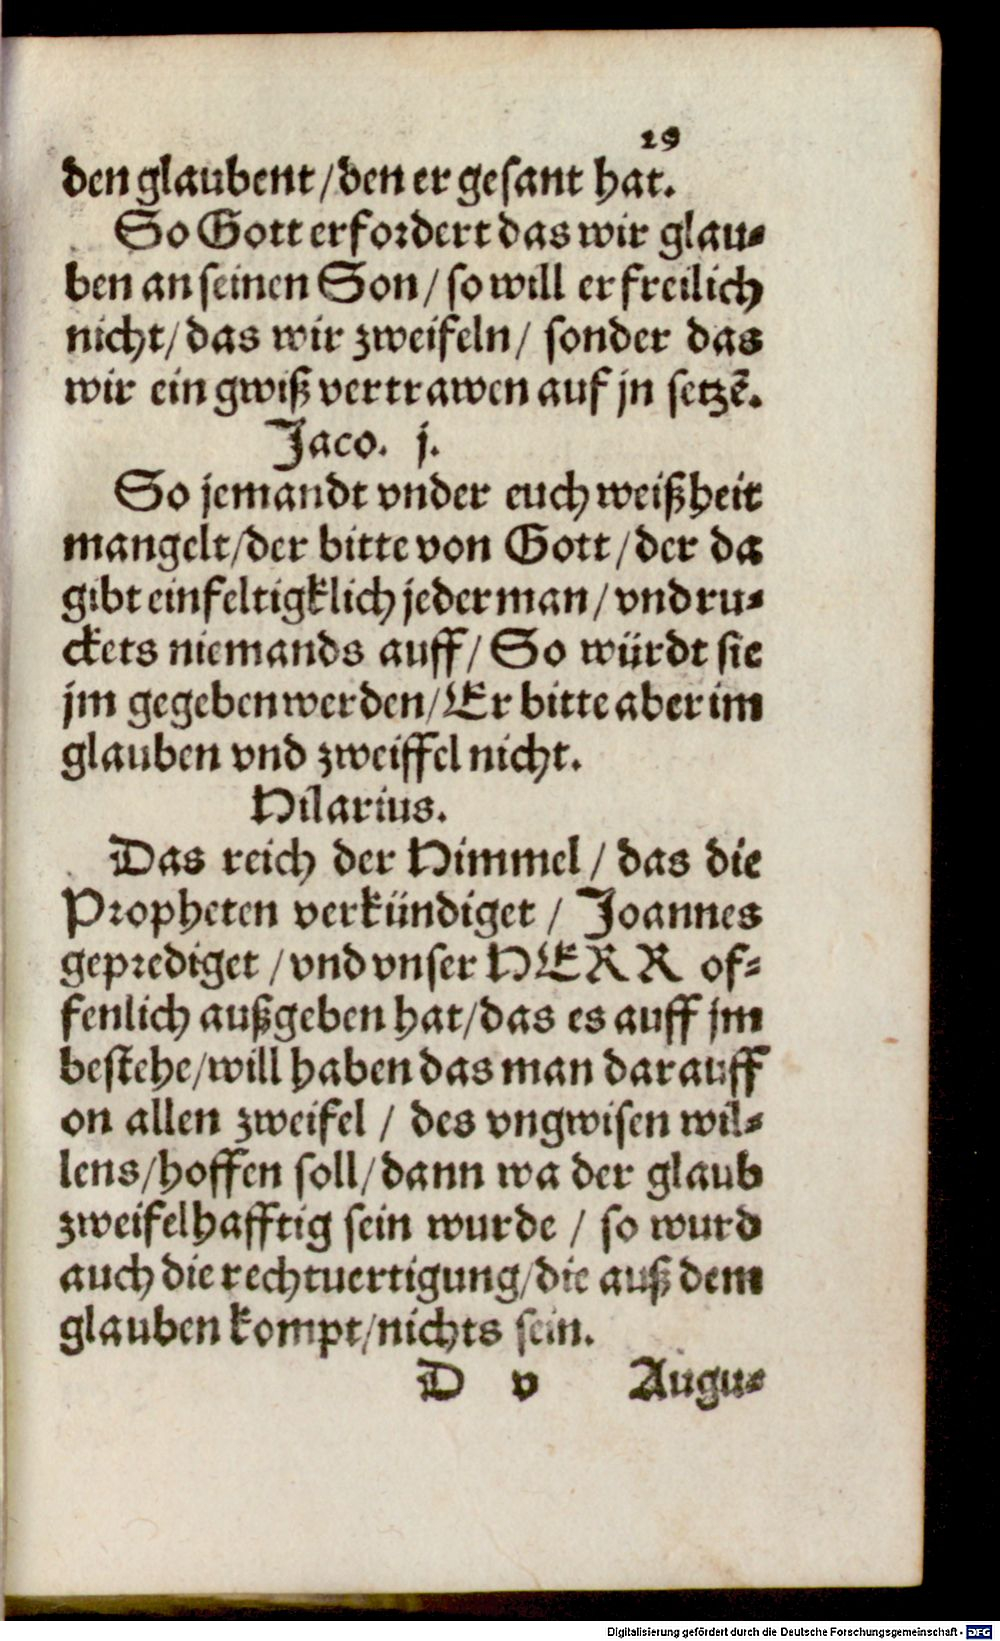 29
den glaubent / den er gesant hat.
So Gott erfordert das wir glau-
ben an seinen Son / so will er freilich
nicht / das wir zweifeln / sonder das
wir ein gwiß vertrawen auf jn setzẽ.
Jaco. j.
So jemandt vnder euch weißheit
mangelt / der bitte von Gott / der da
gibt einfeltigklich jederman / vnd ru-
ckets niemands auff / So würdt sie
jm gegeben werden / Er bitte aber im
glauben vnd zweiffel nicht.
Hilarius.
Das reich der Himmel / das die
Propheten verkündiget / Joannes
geprediget / vnd vnser HERR of-
fenlich außgeben hat / das es auff jm
bestehe / will haben das man darauff
on allen zweifel / des vngwisen wil-
lens / hoffen soll / dann wa der glaub
zweifelhafftig sein wurde / so wurd
auch die rechtuertigung / die auß dem
glauben kompt / nichts sein.
D v Augu-
Digitalisierung gefördert durch die Deutsche Forschungsgemeinschaft - DFG